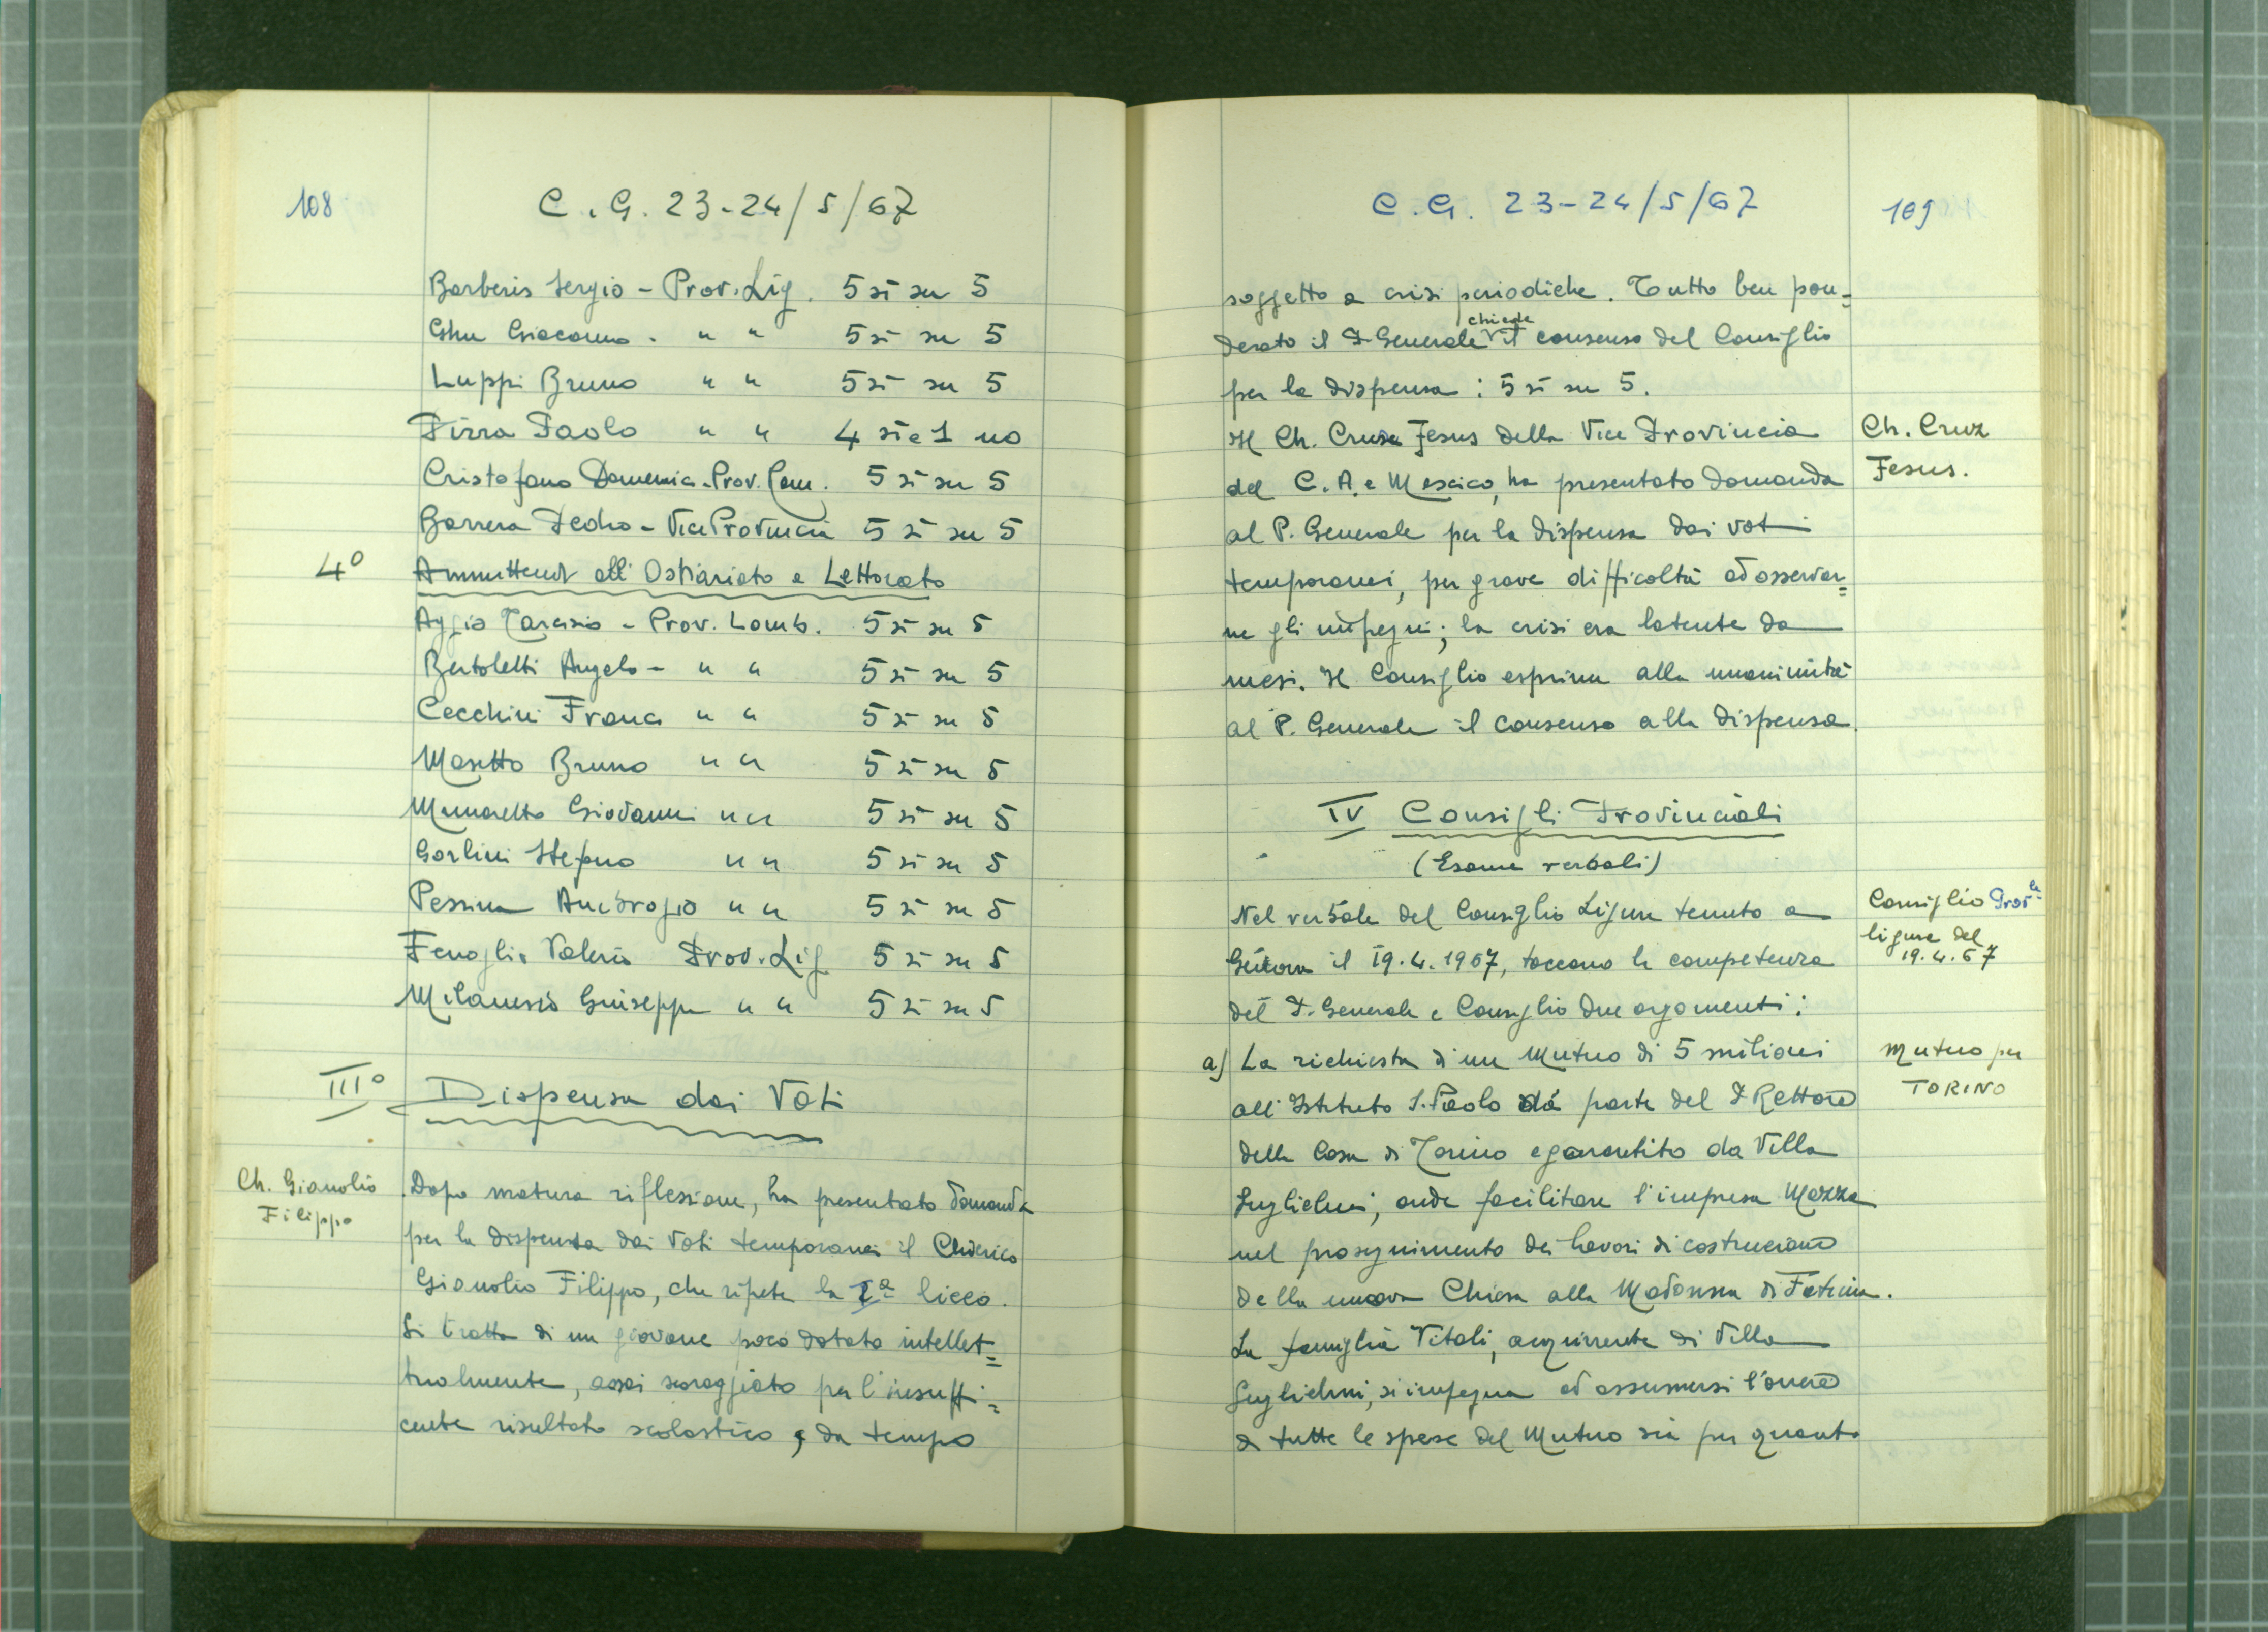 108
C.G. 23-24/5/67
Barberis Sergio - Prov. Lig. 5 sì su 5
Ghu Giacomo - " " 5 sì su 5
Luppi Bruno " " 5 sì su 5
Pirra Paolo " " 4 sì e 1 no
Cristofano Domenico - Prov. Rom. 5 sì su 5
Barrera Pedro - Vice Provincia 5 sì su 5
4º Ammittendi all'Ostiariato e Lettorato
Aggio Tarcisio - Prov. Lomb. 5 sì su 5
Bertoletti Angelo - " " 5 sì su 5
Cecchini Franco " " 5 sì su 5
Masetto Bruno " " 5 sì su 5
Munaretto Giovanni " " 5 sì su 5
Gorlini Stefano " " 5 sì su 5
Pessina Ambrogio " " 5 sì su 5
Fenoglio Valerio Prov. Lig. 5 sì su 5
Milanesio Giuseppe " " 5 sì su 5
IIIº Dispensa dai Voti
Ch. Gianolio
Filippo
Dopo matura riflessione, ha presentato domanda
per la dispensa dai Voti temporanei il Chierico
Gianolio Filippo, che ripete la Iª liceo.
Si tratta di un giovane poco dotato intellet=
tualmente, assai scoraggiato per l'insuffi=
cente risultato scolastico e da tempo
C.G. 23-24/5/67
109
soggetto a crisi periodiche. Tutto ben pon=
derato il P. Generale chiede il consenso del Consiglio
per la dispensa : 5 sì su 5.
Ch. Cruz
Jesus.
Il Ch. Cruz Jesus della Vice Provincia
del C.A. e Messico, ha presentato domanda
al P. Generale per la dispensa dai voti
temporanei, per grave difficoltà ad osservar=
ne gli impegni; la crisi era latente da
mesi. Il Consiglio esprime alla unanimità
al P. Generale il consenso alla dispensa.
IV Consigli Provinciali
(Esame verbali)
Consiglio Prov.le
ligure del
19.4.67
Nel verbale del Consiglio Ligure tenuto a
Genova il 19.4.1967, toccano la competenza
del P. Generale e Consiglio due argomenti:
Mutuo per
TORINO
a) La richiesta di un Mutuo di 5 milioni
all'Istituto S. Paolo da parte del P. Rettore
della Casa di Torino e garantito da Villa
Guglielmi, onde facilitare l'impresa Mazza
nel proseguimento dei lavori di costruzione
della nuova Chiesa alla Madonna di Fatima.
La famiglia Vitali, acquirente di Villa
Guglielmi, si impegna ad assumersi l'onere
di tutte le spese del Mutuo sia per quanto